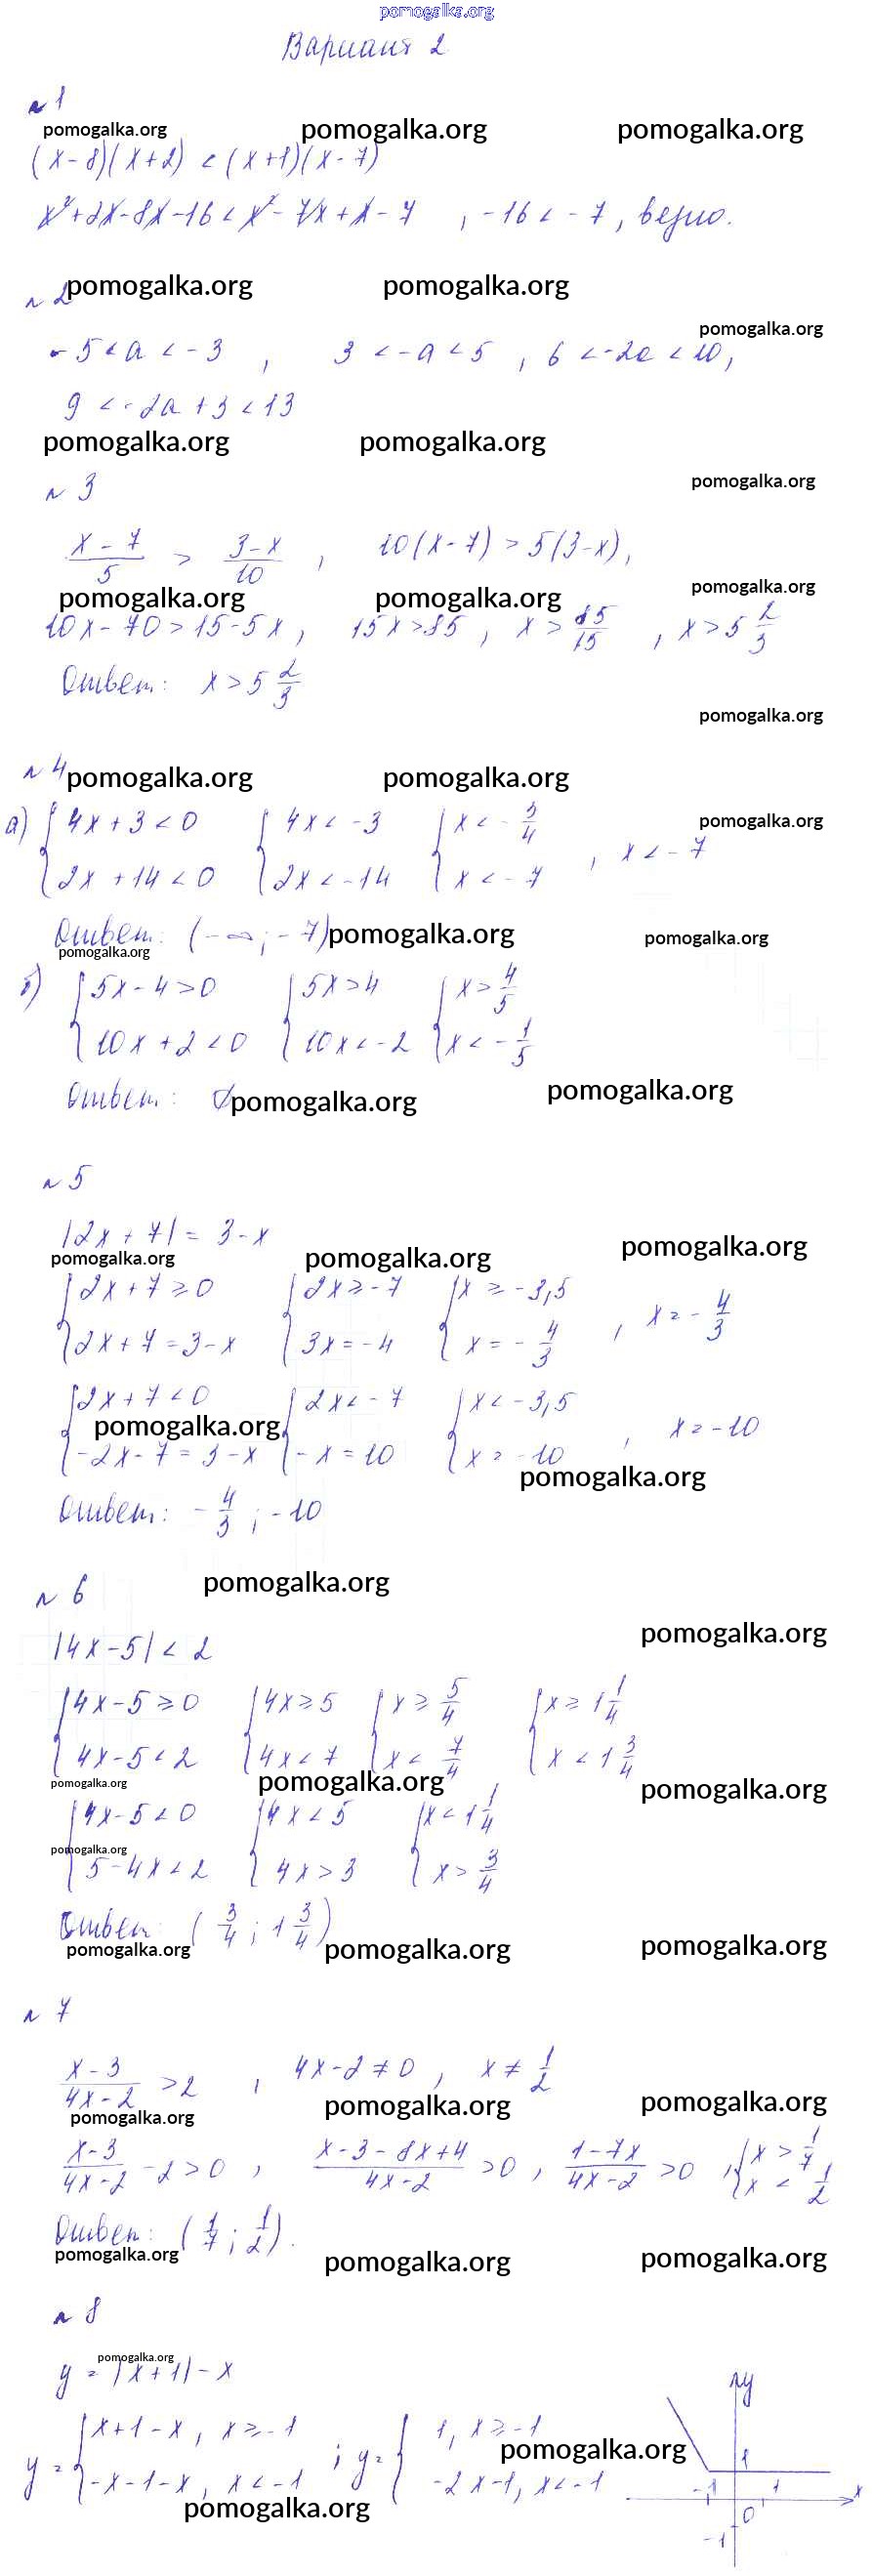 pomogalka.org
Вариант 2
№1
pomogalka.org pomogalka.org pomogalka.org
(x-8)(x+2) < (x+1)(x-7)
x²+2x-8x-16 < x²-7x+x-7 , -16 < -7, верно.
№2
pomogalka.org pomogalka.org
pomogalka.org
-5 < a < -3 , 3 < -a < 5 , 6 < -2a < 10,
9 < -2a + 3 < 13
pomogalka.org pomogalka.org
№3
pomogalka.org
(x-7)/5 > (3-x)/10 , 10(x-7) > 5(3-x),
pomogalka.org pomogalka.org pomogalka.org
10x-70 > 15-5x, 15x > 85, x > 85/15 , x > 5 2/3
Ответ: x > 5 2/3
pomogalka.org
№4
pomogalka.org pomogalka.org
pomogalka.org
а) {4x+3<0 {4x<-3 {x<-3/4
{2x+14<0 {2x<-14 {x<-7 , x<-7
Ответ: (-∞; -7)
pomogalka.org pomogalka.org
pomogalka.org
б) {5x-4>0 {5x>4 {x>4/5
{10x+2<0 {10x<-2 {x<-1/5
Ответ: ∅
pomogalka.org pomogalka.org
№5
|2x+7| = 3-x
pomogalka.org pomogalka.org pomogalka.org
{2x+7≥0 {2x≥-7 {x≥-3,5
{2x+7=3-x {3x=-4 {x=-4/3 , x=-4/3
{2x+7<0 {2x<-7 {x<-3,5
pomogalka.org
{-2x-7=3-x {-x=10 {x=-10 , x=-10
pomogalka.org
Ответ: -4/3; -10
pomogalka.org
№6
pomogalka.org
|4x-5| < 2
{4x-5≥0 {4x≥5 {x≥5/4 {x≥1 1/4
{4x-5<2 {4x<7 {x<7/4 {x<1 3/4
pomogalka.org pomogalka.org pomogalka.org
{4x-5<0 {4x<5 {x<1 1/4
pomogalka.org
{5-4x<2 {4x>3 {x>3/4
Ответ: (3/4; 1 3/4)
pomogalka.org pomogalka.org pomogalka.org
№7
(x-3)/(4x-2) > 2 , 4x-2≠0, x≠1/2
pomogalka.org pomogalka.org pomogalka.org
(x-3)/(4x-2) - 2 > 0 , (x-3-8x+4)/(4x-2) > 0, (1-7x)/(4x-2) > 0 , {x > 1/7
{x < 1/2
Ответ: (1/7; 1/2).
pomogalka.org pomogalka.org pomogalka.org
№8
pomogalka.org
y = |x+1| - x
y = {x+1-x, x≥-1 ; y = {1, x≥-1
{-x-1-x, x<-1 {-2x-1, x<-1
pomogalka.org
pomogalka.org
y
1
-1 1 x
0
-1